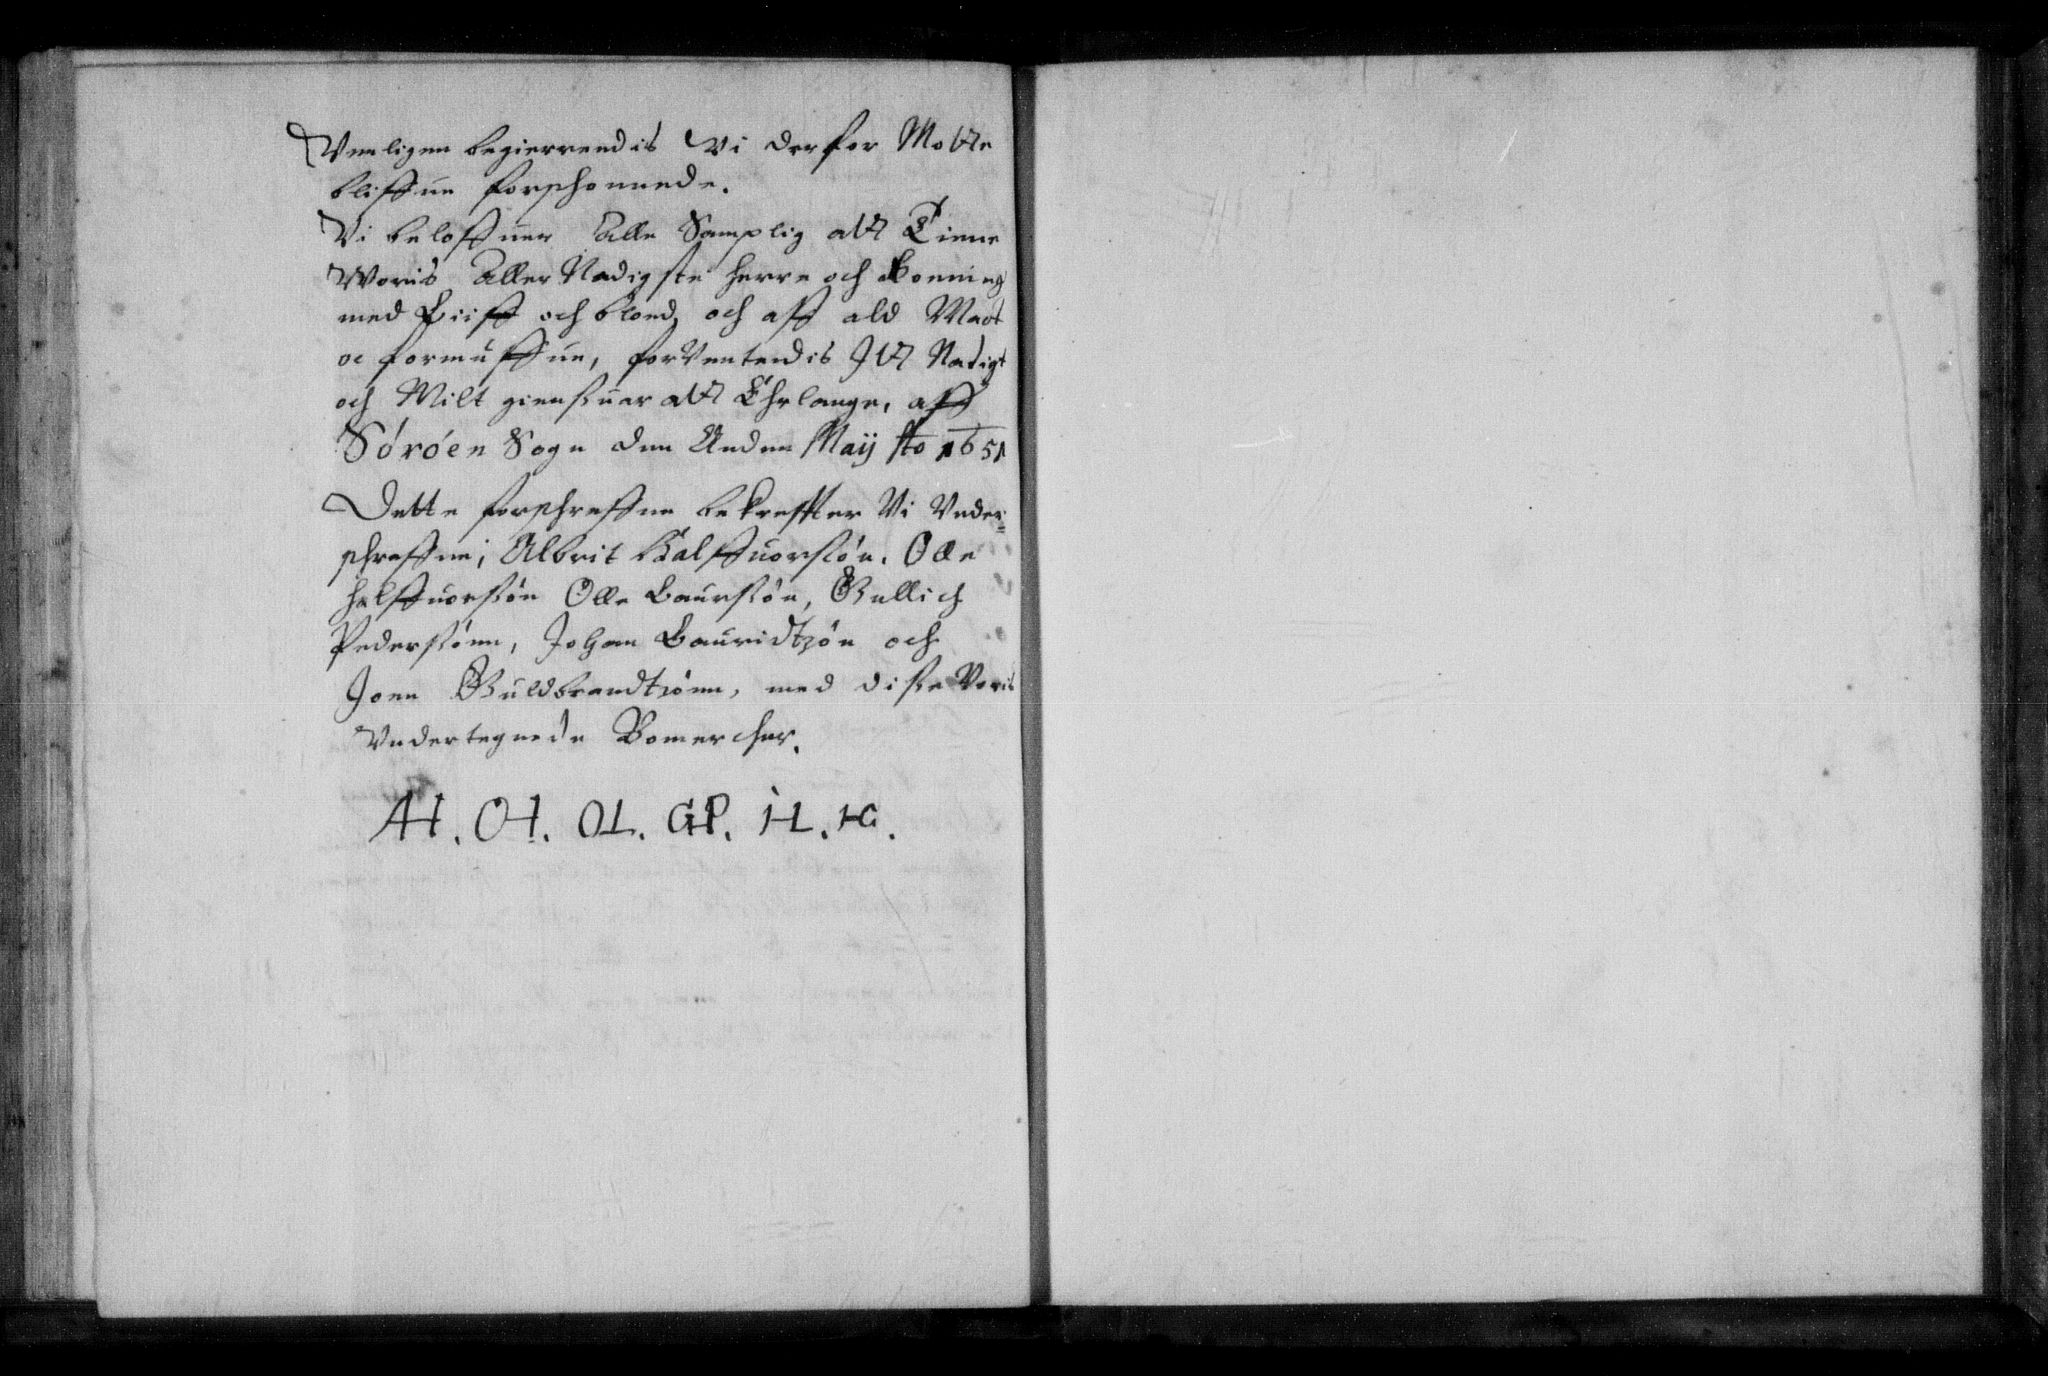 Venligen begierrendis Vi derfor Motte
bliffue forschonnede.
Vi beloffuer Alle Samplig att Tiene
Woris Aller Nadigste herre och Konning
med Liiff och bloed, och aff ald Magt
oc formuffue, forVentendis Itt Nadigt
och Milt giensuar att Ehrlange, aff
Sørøen Sogn den Anden Maij Ao 1651
Dette forschreffne bekreffter Vi Vnder-
schreffne; Albrit Halffuorsøn. Olle
Halffuorsøn Olle Laursøn, Gullich
Pedersønn, Johan Lauridtzøn och
Joen Guldbrandtzønn, med disse Voris
Vndertegnede Bomercher.
AH. OH. OL. GP. IL. IG.